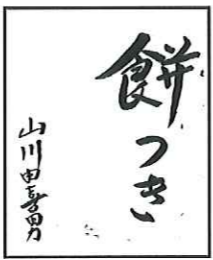 餅つき
山川由喜男